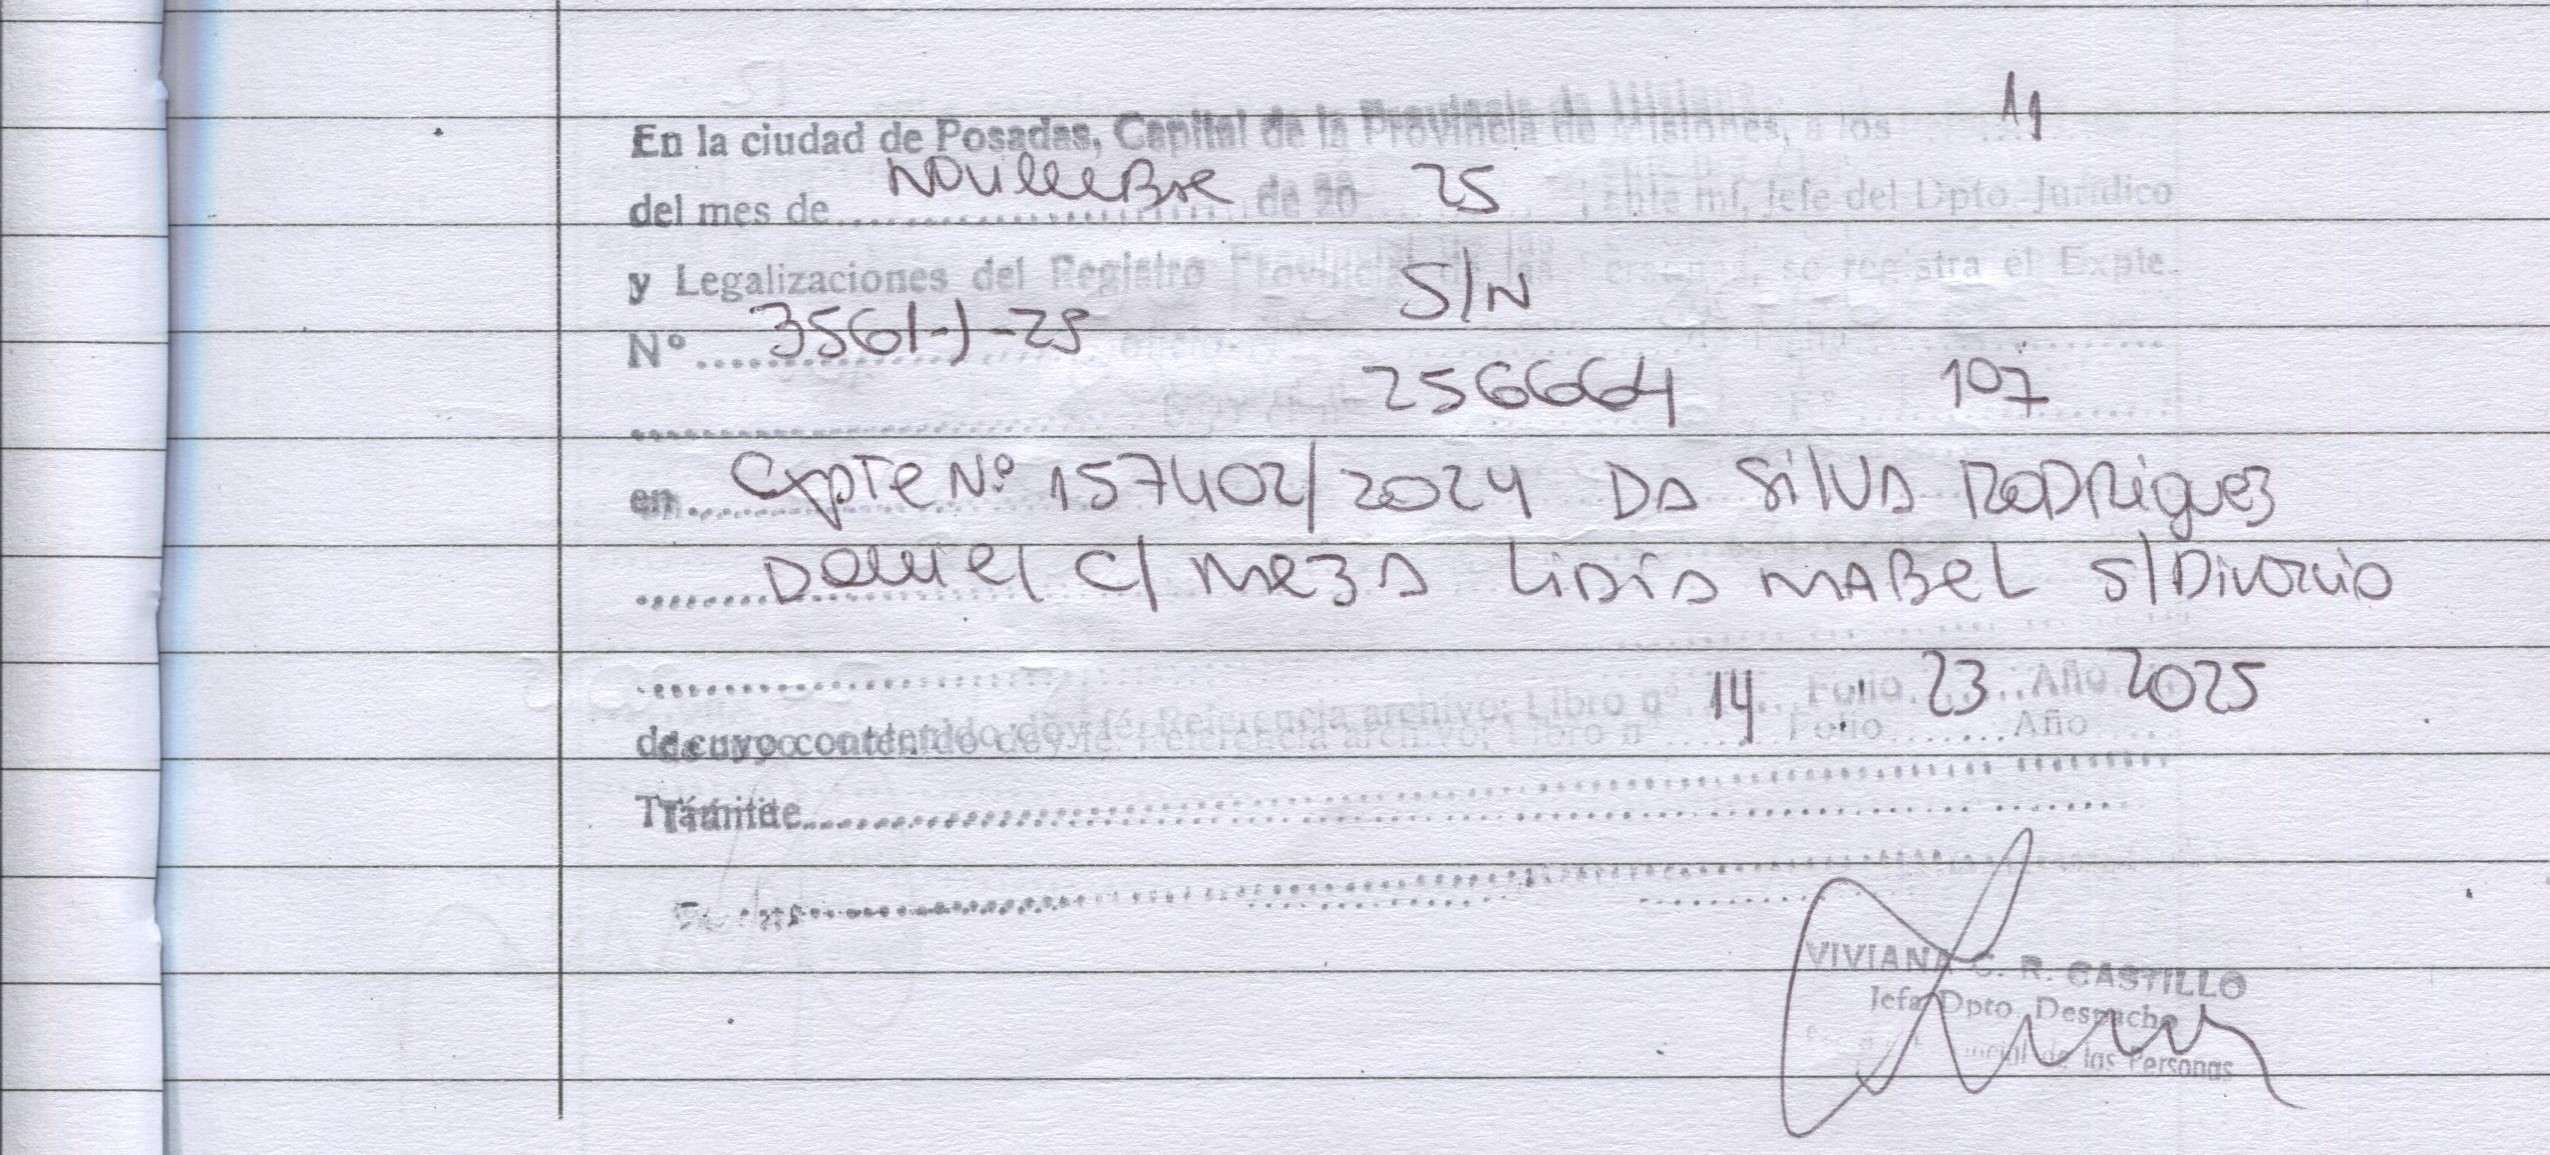 En la ciudad de Posadas, Capital de la Provincia de Misiones, a los 19
del mes de NOVIEMBRE de 20 25, ante mí, Jefe del Dpto Jurídico
y Legalizaciones del Registro Provincial de las Personas, se registra el Expte.
Nº 3561-J-25 S/N
256664 107
en Expte Nº 157402/2024 DA SILVA RODRIGUEZ
DANIEL C/ MEZA LIDIA MABEL S/DIVORCIO
de cuyo contenido doy fé. Referencia archivo; Libro nº 14 Folio 23 Año 2025
Trámite
VIVIANA C. R. CASTILLO
Jefa Dpto. Despacho
de las Personas